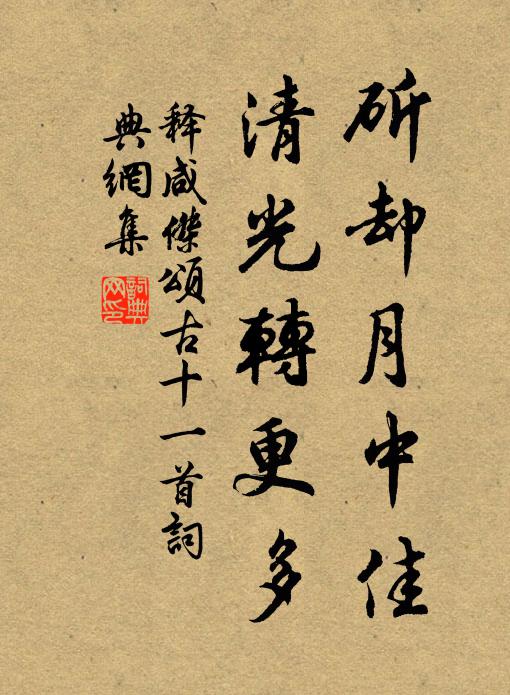 斫却月中佳
清光轉更多
释咸傑頌古十一首詞
典網集
詞典網印